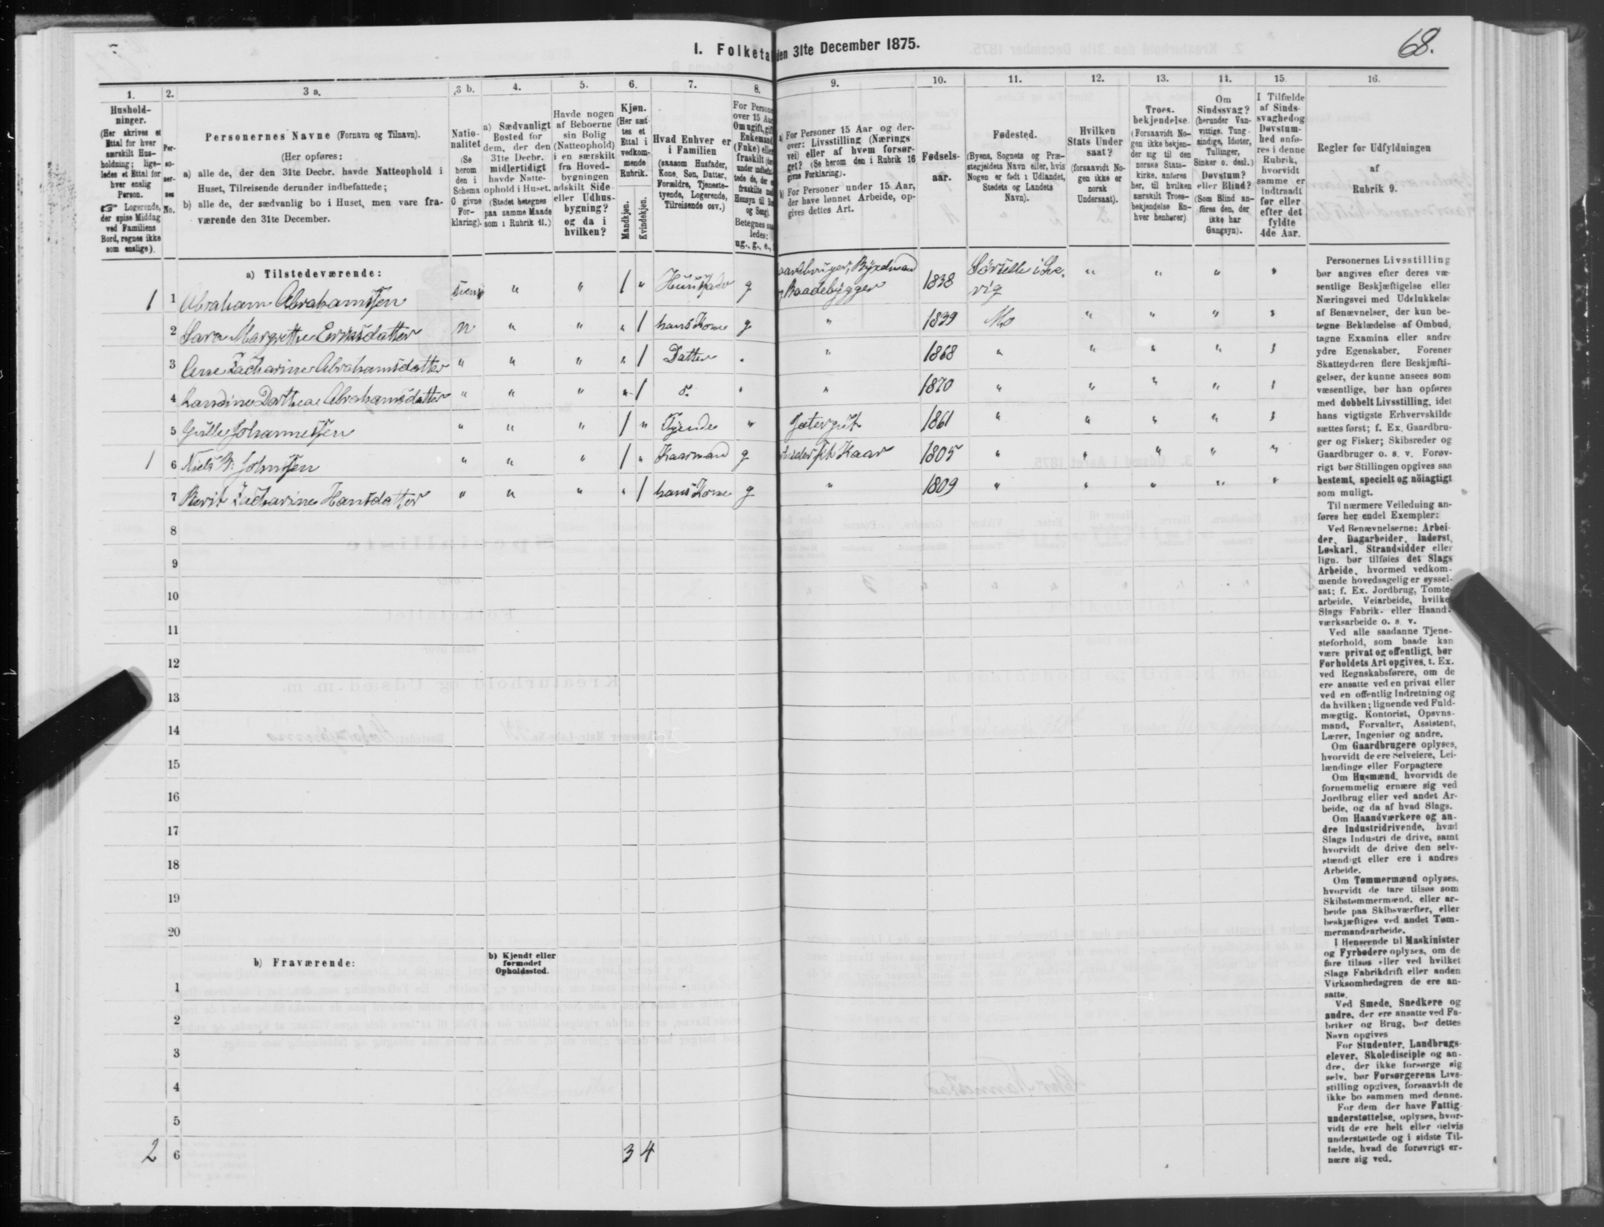 68.
I. Folketa den 31te December 1875.
1. 2. 3 a. 3 b. 4. 5. 6. 7. 8. 9. 10. 11. 12. 13. 14. 15. 16.
Hushold-
ninger.
(Her skrives et
Ettal for hver
særskilt Hus-
holdning; lige-
ledes et Ettal for
hver enslig
Person.
Logerende,
der spise Middag
ved Familiens
Bord, regnes ikke
som enslige).
Per-
so-
ner-
nes
No.
Personernes Navne (Fornavn og Tilnavn).
(Her opføres:
a) alle de, der den 31te Decbr. havde Natteophold i
Huset, Tilreisende derunder indbefattede;
b) alle de, der sædvanlig bo i Huset, men vare fra-
værende den 31te December.
Natio-
nalitet
(Se
herom
den i
Schema
6 givne
For-
klaring).
a) Sædvanligt
Bosted for
dem, der den
31te Decbr.
midlertidigt
havde Natte-
ophold i Huset.
(Stedet betegnes
paa samme Maade
som i Rubrik 11.)
Havde nogen
af Beboerne
sin Bolig
(Natteophold)
i en særskilt
fra Hoved-
bygningen
adskilt Side
eller Udhus-
bygning?
og da i
hvilken?
Kjøn.
(Her sæt-
tes et
Ettal i
vedkom-
mende
Rubrik.
Mandkjøn.
Kvindekjøn.
Hvad Enhver er
i Familien
(saasom Husfader,
Kone, Søn, Datter,
Forældre, Tjeneste-
tyende, Logerende,
Tilreisende osv.)
For Persone
over 15 Aar
Om ugift, gift
Enkemand
(Enke) eller
fraskilt
Betegnes saa
ledes:
ug., g., e.,
a) For Personer 15 Aar og der-
over: Livsstilling (Nærings
vei) eller af hvem forsør-
get? (Se herom den i Rubrik 16
givne Forklaring).
b) For Personer under 15 Aar,
der have lønnet Arbeide, op-
gives dettes Art.
Fødsels-
aar.
Fødested.
(Byens, Sognets og Præ-
stegjeldets Navn eller, hvis
Nogen er født i Udlandet,
Stedets og Landets
Navn).
Hvilken
Stats Under
saat?
(forsaavidt No-
gen ikke er
norsk
Undersaat).
Troes-
bekjendelse.
(Forsaavidt No-
gen ikke bekjen-
der sig til den
norske Stats-
kirke, anføres
her, til hvilken
særskilt Troes-
bekjendelse En-
hver henhører).
Om
Sindssvag?
(herunder Van-
vittige, Tung-
sindige, Idioter,
Tullinger,
Sinker o. desl.)
Døvstum?
eller Blind?
(Som Blind an-
føres den, der
ikke har
Gangsyn).
I Tilfælde
af Sinds-
svaghed og
Døvstum-
hed anfø-
res i denne
Rubrik,
hvorvidt
samme er
indtraadt
før eller
efter det
fyldte
4de Aar.
Regler for Udfyldningen
af
Rubrik 9.
a) Tilstedeværende:
1 1 Abraham Abrahamsen " " 1 " Huusfader g Baadebygger 1838 " " " "
2 Sara Margrethe Eriksdatter n " " " 1 hans Kone g " 1839 Mo " " " "
3 Ane Zacharine Abrahamsdatter " " " " 1 Datter " " 1868 " " " " "
4 Landine Dorthea Abrahamsdatter " " " " 1 " " 1870 " " " " "
5 Johannessen " " " 1 " Tyende " 1861 " " " " "
1 6 Niels Johnsen " " " 1 " Kaarmand g 1805 " " " " "
7 Berit Zacharine Hansdatter " " " " 1 hans Kone g " 1809 " " " " "
8
9
10
11
12
13
14
15
16
17
18
19
20
b) Fraværende:
b) Kjendt eller
formodet
Opholdssted.
1
2
3
4
5
2 6 3 4
Personernes Livsstilling
bør angives efter deres væ-
sentlige Beskjæftigelse eller
Næringsvei med Udelukkelse
af Benævnelser, der kun be-
tegne Beklædelse af Ombud,
tagne Examina eller andre
ydre Egenskaber. Forener
Skatteyderen flere Beskjæfti-
gelser, der kunne ansees som
væsentlige, bør han opføres
med dobbelt Livsstilling, idet
hans vigtigste Erhvervskilde
sættes først; f. Ex. Gaardbru-
ger og Fisker; Skibsreder og
Gaardbruger o. s. v. Forøv-
rigt bør Stillingen opgives saa
bestemt, specielt og nøiagtigt
som muligt.
Til nærmere Veiledning an-
føres her endel Exempler:
Ved Benævnelserne: Arbei-
der, Dagarbeider, Inderst,
Løskarl, Strandsidder eller
lign. bør tilføies det Slags
Arbeide, hvormed vedkom-
mende hovedsagelig er syssel-
sat; f. Ex. Jordbrug, Tomte-
arbeide, Veiarbeide, hvilket
Slags Fabrik- eller Haand-
værksarbeide o. s. v.
Ved alle saadanne Tjene-
steforhold, som baade kan
være privat og offentligt, bør
Forholdets Art opgives, t. Ex.
ved Regnskabsførere, om de
ere ansatte ved en privat eller
ved en offentlig Indretning og
da hvilken; lignende ved Fuld-
mægtig, Kontorist, Opsyns-
mand, Forvalter, Assistent,
Lærer, Ingeniør og andre.
Om Gaardbrugere oplyses,
hvorvidt de ere Selveiere, Lei-
lændinge eller Forpagtere
Om Husmænd, hvorvidt de
fornemmelig ernære sig ved
Jordbrug eller ved andet Ar-
beide, og da af hvad Slags.
Om Haandværkere og an-
dre Industridrivende, hvad
Slags Industri de drive, samt
hvorvidt de drive den selv-
stændigt eller ere i andres
Arbeide.
Om Tømmermænd oplyses,
hvorvidt de fare tilsøs som
Skibstømmermænd, eller ar-
beide paa Skibsværfter, eller
beskjæftiges ved andet Tøm-
mermandsarbeide.
I Henseende til Maskinister
og Fyrbødere oplyses, om de
fare tilsøs eller ved hvilket
Slags Fabrikdrift eller anden
Virksomhedsgren de ere an-
satte.
Ved Smede, Snedkere og
andre, der ere ansatte ved Fa-
briker og Brug, bør dettes
Navn opgives
For Studenter, Landbrugs-
elever, Skoledisciple og an-
dre, der ikke forsørge sig
selv, bør Forsørgerens Livs-
stilling opgives, forsaavidt de
ikke bo sammen med denne.
For dem, der have Fattig-
understøttelse, oplyses, hvor-
vidt de ere helt eller delvis
understøttede og i sidste Til-
fælde, hvad de forøvrigt er-
nære sig ved.